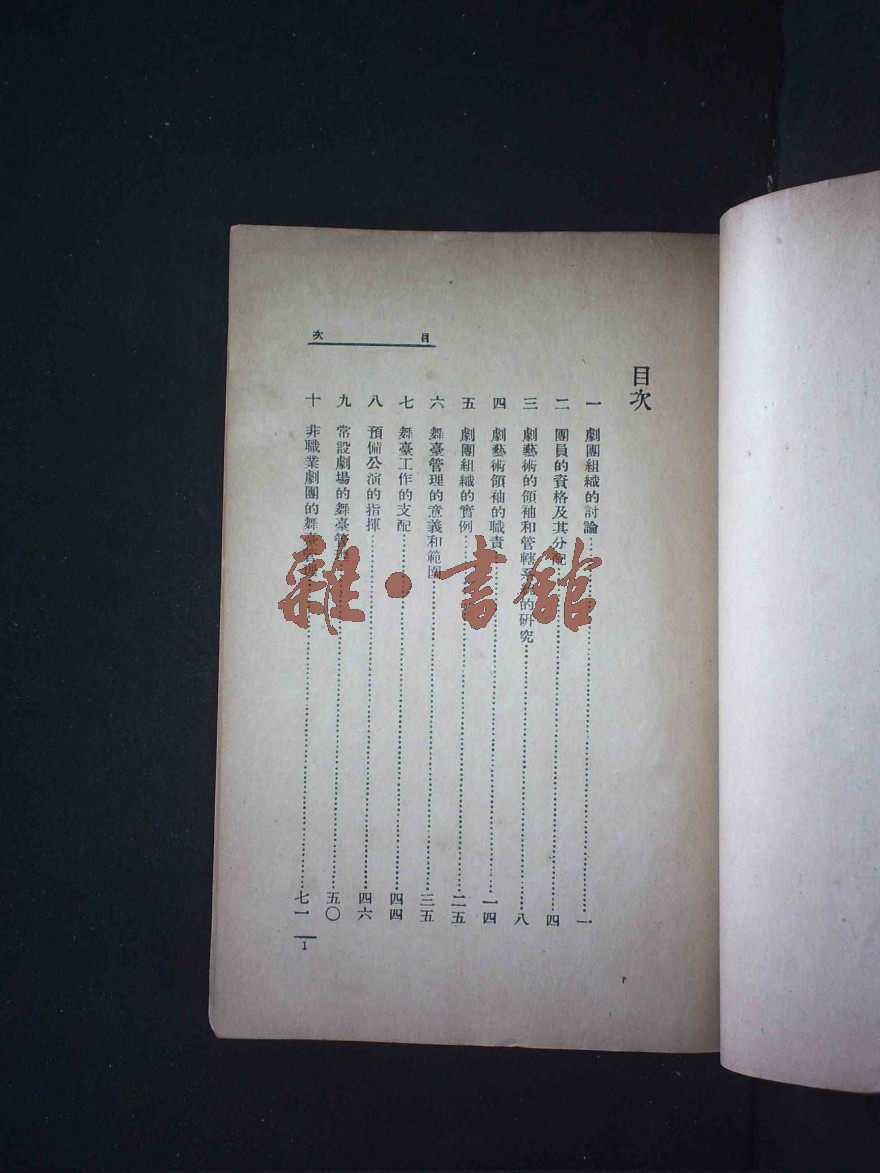 目次
目次
一　劇團組織的討論……一
二　團員的資格及其分配……四
三　劇藝術的領袖和管轄系統的研究……八
四　劇藝術領袖的職責……一四
五　劇團組織的實例……二五
六　舞臺管理的意義和範圍……三五
七　舞臺工作的支配……四四
八　預備公演的指揮……四六
九　常設劇場的舞臺管理……五〇
十　非職業劇團的舞臺管理……七一
1
雜·書館